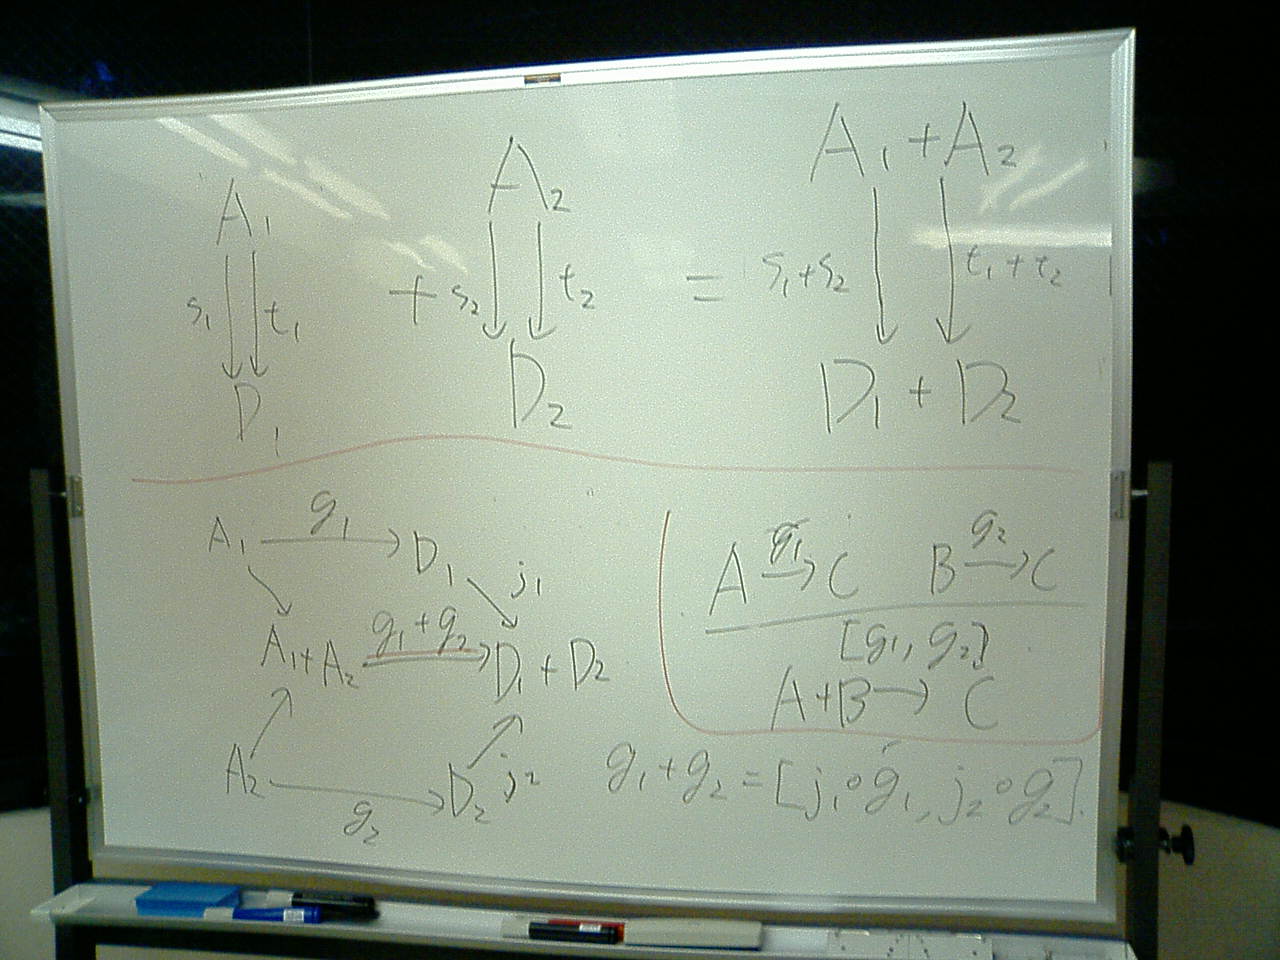 A₁ + A₂ = A₁ + A₂
s₁ t₁ s₂ t₂ s₁+s₂ t₁+t₂
D₁ D₂ D₁ + D₂
A₁ g₁ D₁ j₁
A₁+A₂ g₁+g₂ D₁ + D₂
A₂ g₂ D₂ j₂
A g₁→ C B g₂→ C
[g₁, g₂]
A+B → C
g₁+g₂ = [j₁∘g₁, j₂∘g₂].